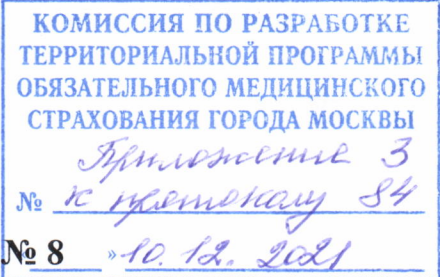 КОМИССИЯ ПО РАЗРАБОТКЕ
ТЕРРИТОРИАЛЬНОЙ ПРОГРАММЫ
ОБЯЗАТЕЛЬНОГО МЕДИЦИНСКОГО
СТРАХОВАНИЯ ГОРОДА МОСКВЫ
Приложение 3
№ к протоколу 84
№ 8 » 10. 12. 2021